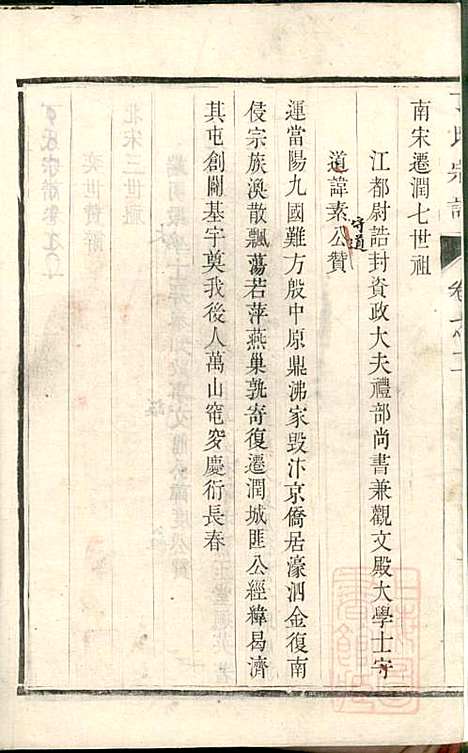 氏宗譜 卷七之二
南宋遷潤七世祖
江都尉誥封資政大夫禮部尚書兼觀文殿大學士字
守道
道諱素公贊
運當陽九國難方殷中原鼎沸家毀汴京僑居濠泗金復南
侵宗族渙散飄蕩若萍燕巢孰寄復遷潤城匪公經緯曷濟
其屯創闢基宇奠我後人萬山窀穸慶衍長春